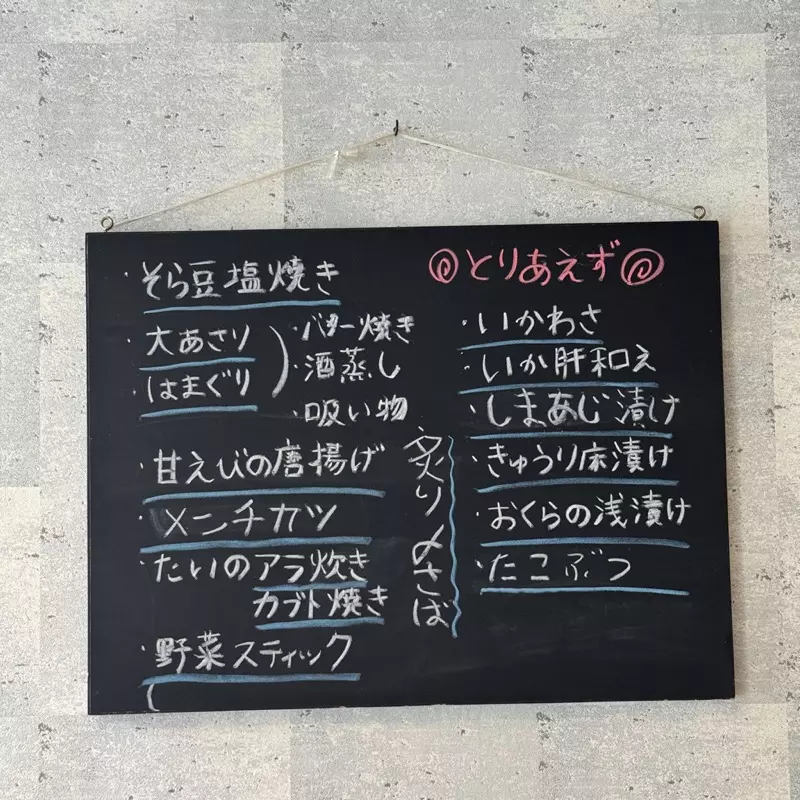 ・そら豆塩焼き
大あさり
はまぐり
・バター焼き
・酒蒸し
・吸い物
・甘えびの唐揚げ
・メンチカツ
・たいのアラ炊き
カブト焼き
・野菜スティック
炙り〆さば
とりあえず
・いかわさ
・いか肝和え
・しまあじ漬け
・きゅうり床漬け
・おくらの浅漬け
・たこぶつ